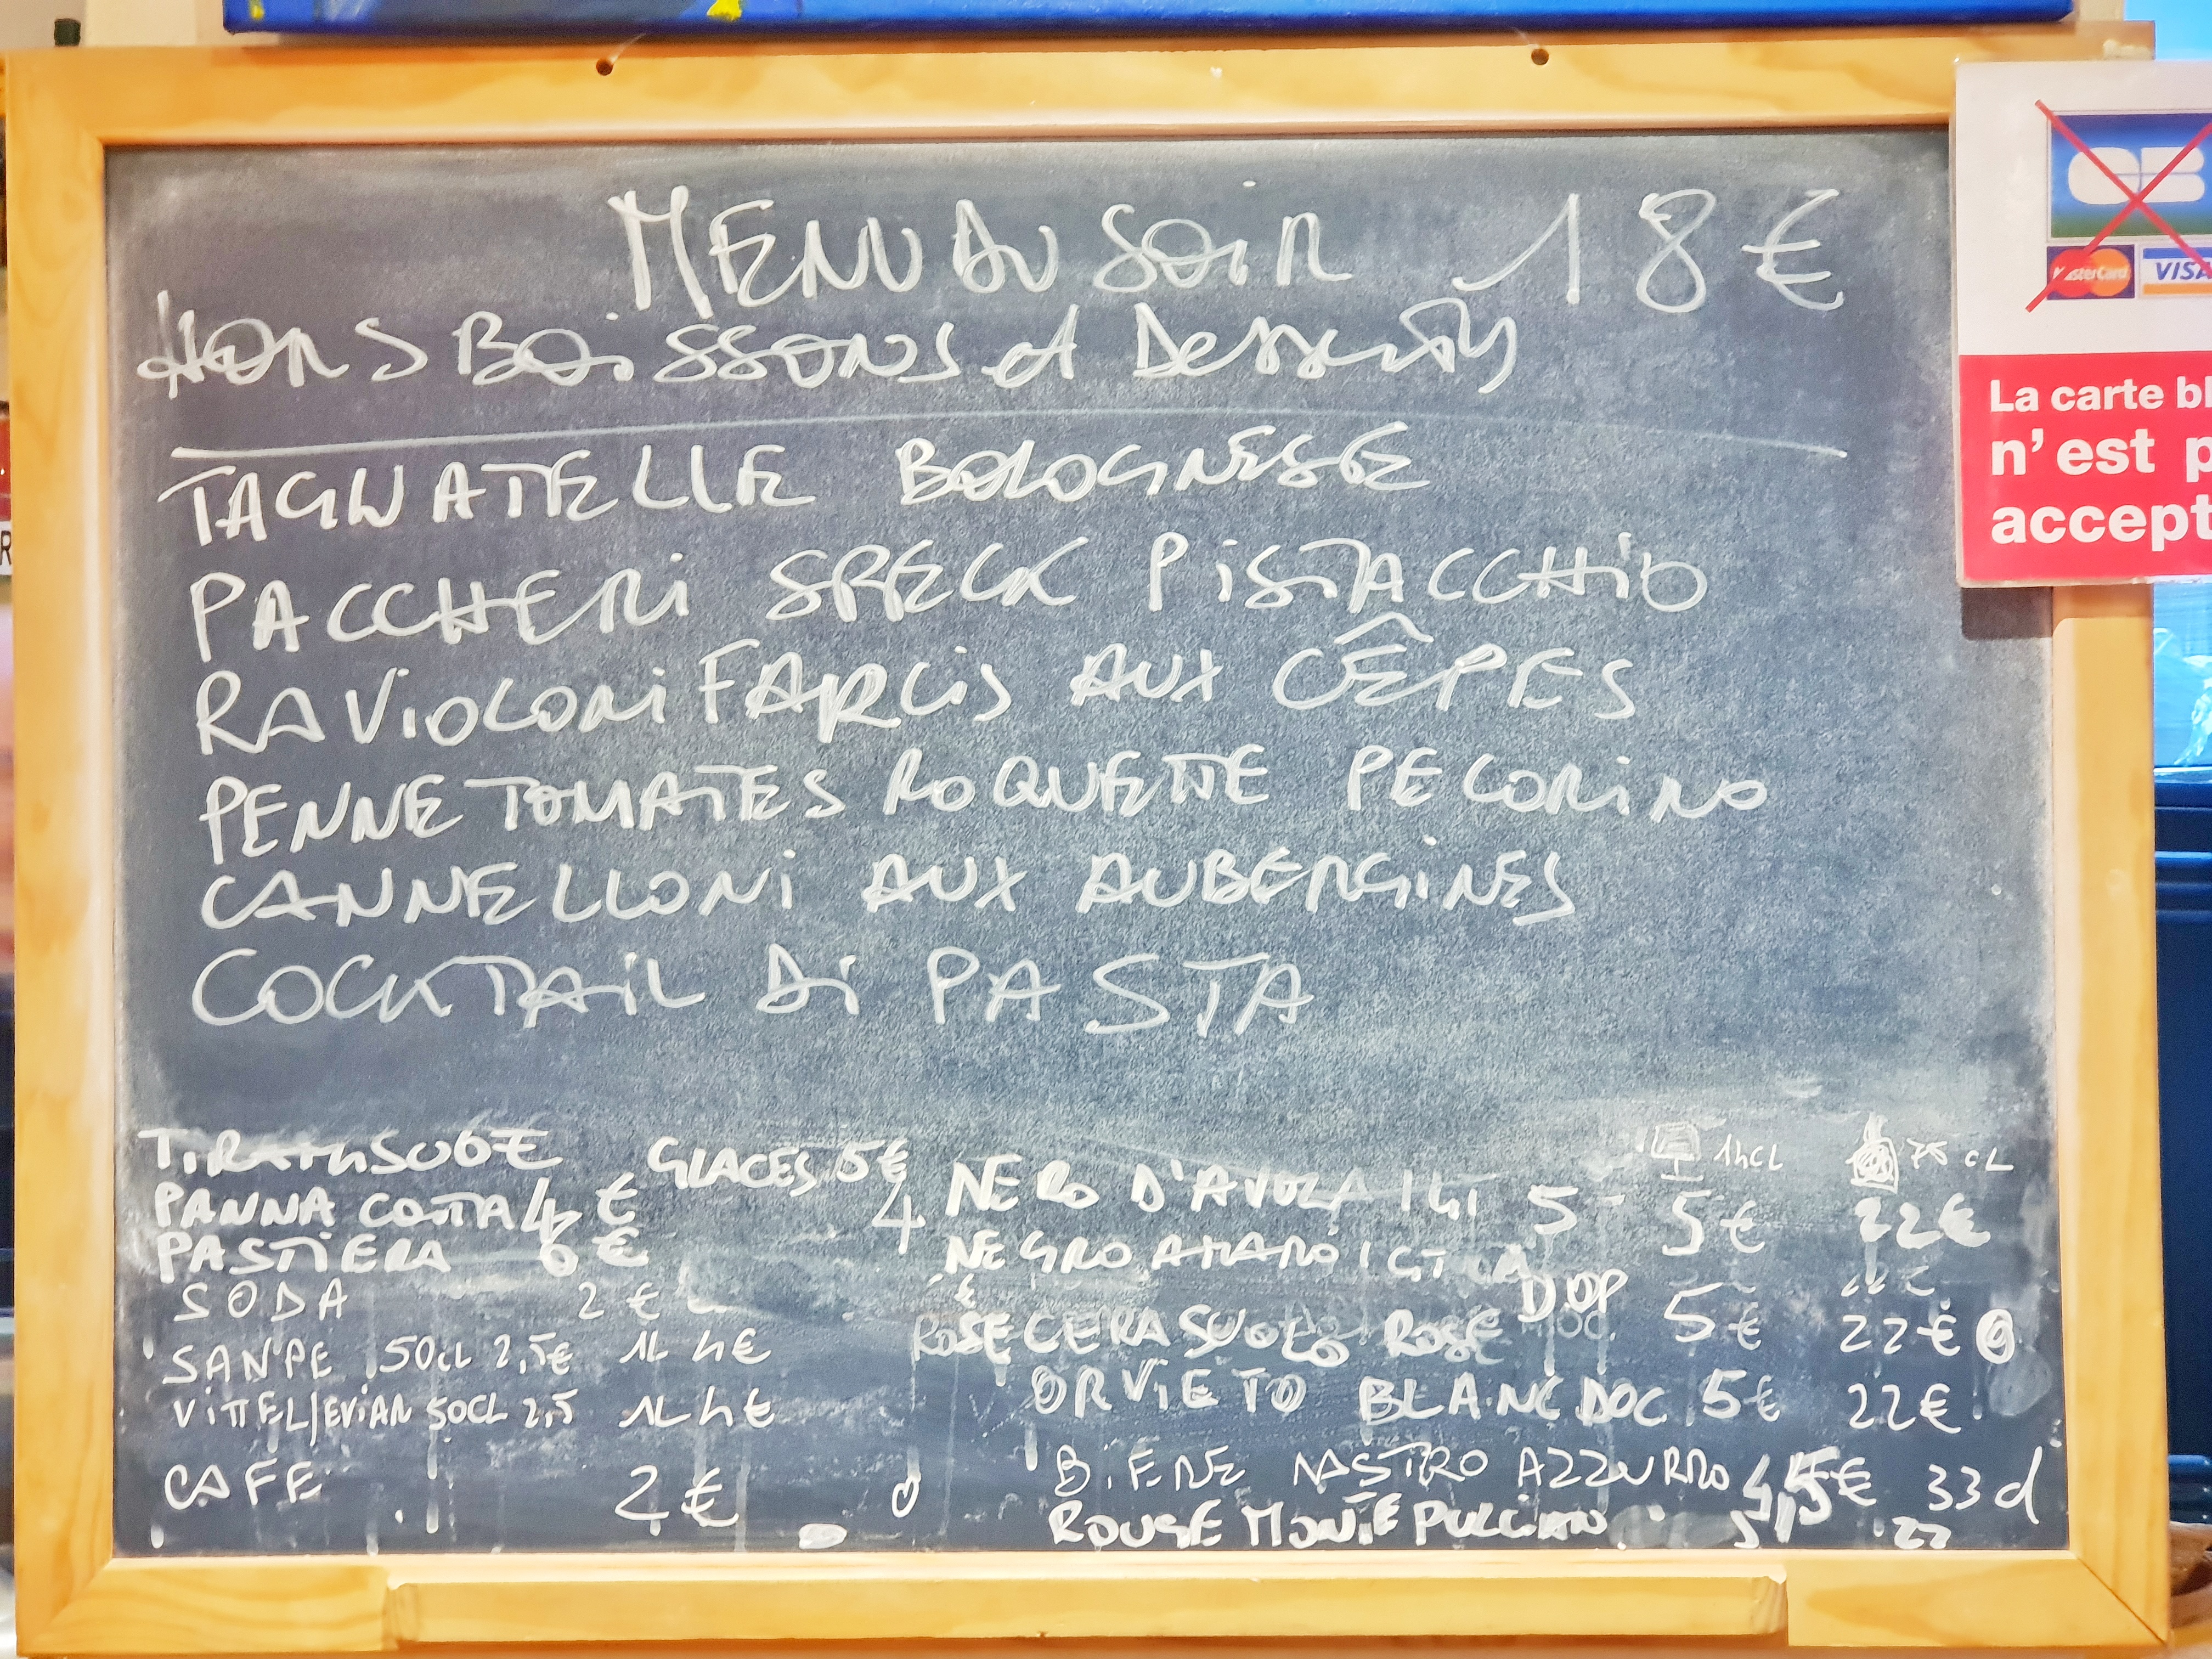 MENU DU SOIR 18€
HORS BOISSONS et Desserts
TAGLIATELLE BOLOGNESE
PACCHERI SPECK PISTACCHIO
RAVIOLONI FARCIS AUX CÊPES
PENNE TOMATES ROQUETTE PECORINO
CANNELLONI AUX AUBERGINES
COCKTAIL Di PASTA
TIRAMISU 6€ GLACES 5€
PANNA COTTA 4€
PASTIERA 6€
SODA 2€
SAN PE 50CL 2,5€ 1L 4€
VITTEL/EVIAN 50CL 2,5 1L 4€
CAFE 2€
14CL 75 CL
4 NERO D'AVOLA IGT 5 5€ 22€
NEGRO AMARO IGT
ROSE CERASUOLO ROSE DOP 5€ 22€
ORVIETO BLANC DOC 5€ 22€
BIERE NASTRO AZZURRO 4,5€ 33cl
ROUGE MONTEPULCIAN 22
CB
MasterCard VISA
La carte bl
n'est p
accept
R